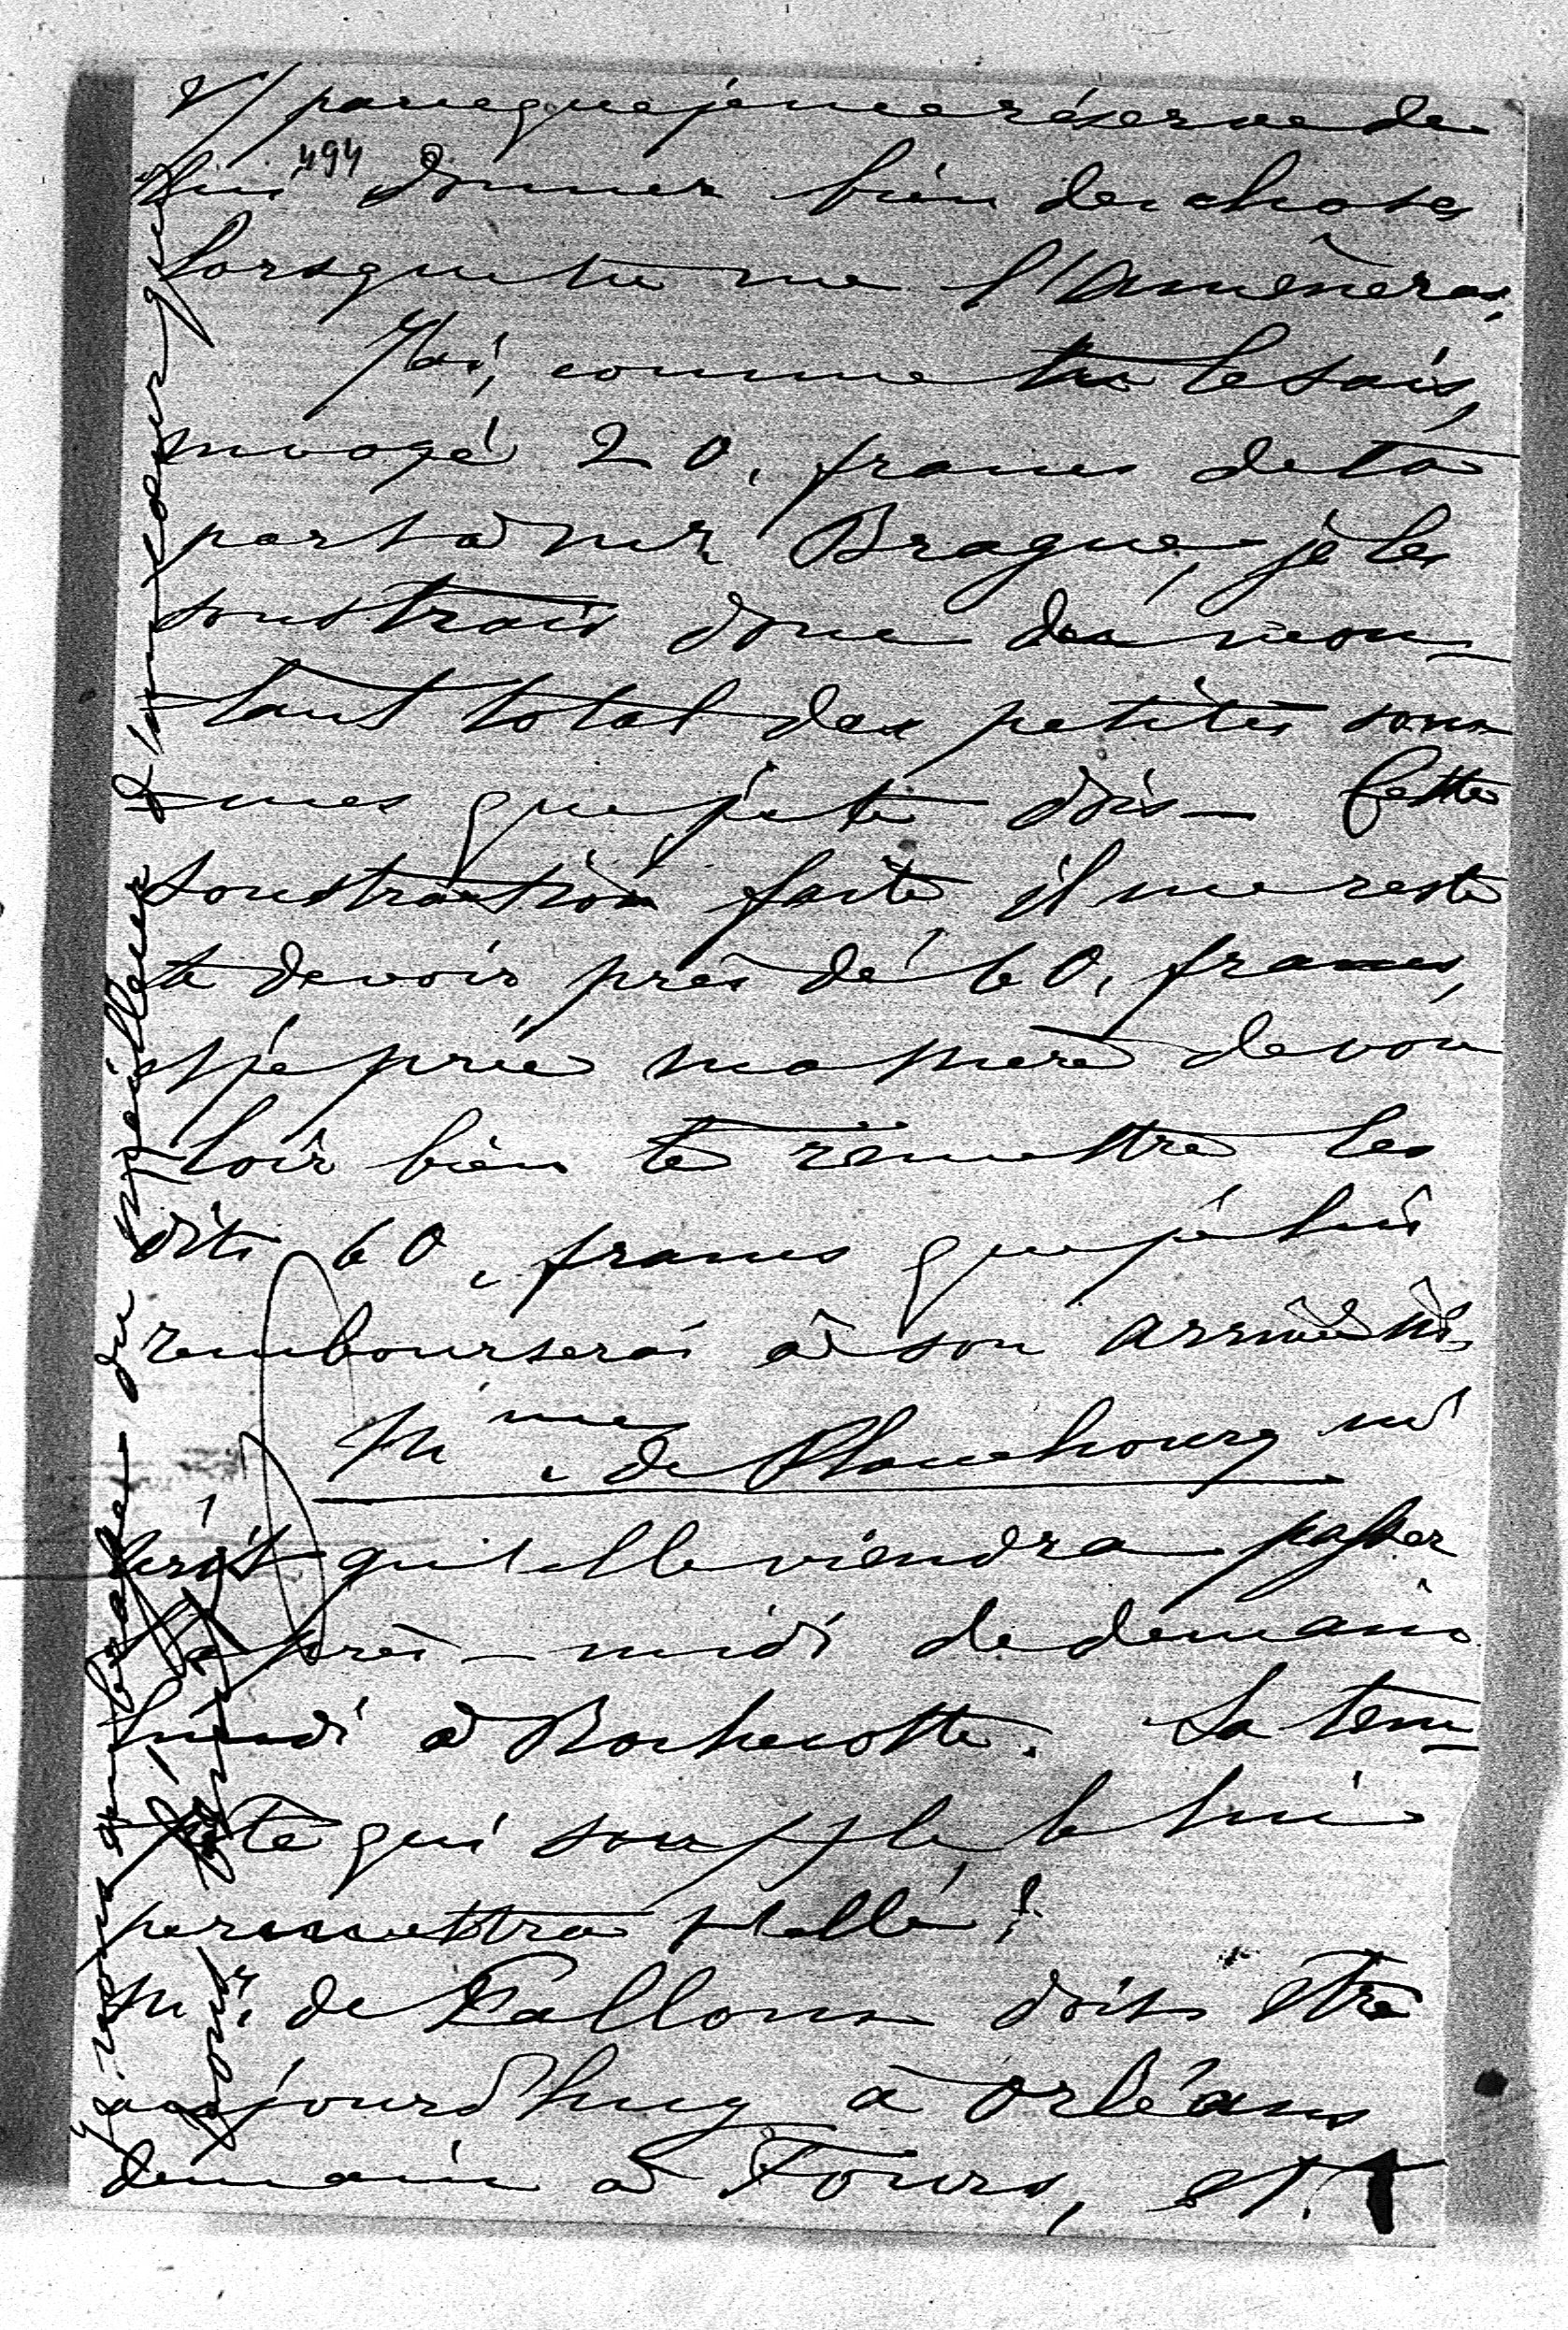 2/ parceque je me réserve de
lui donner bien des choses
494
lorsque tu me l'amèneras.
J'ai, comme tu le sais,
envoyé 20. francs de ta
part à Mr. Brague, je les
soustrais donc du mon-
tant total des petites som-
mes que je te dois — Cette
soustraction faite, il me reste
te devoir près de 60. francs,
et je prie ma mère de vou
loir bien te remettre les
dits 60. francs que je lui
rembourserai à son arrivée ici.
Mmes. de Blanchourg m'
écrit qu'elle viendra passer
l'après-midi de demain
lundi à Rochecotte. La tem-
pête qui souffle le lui
permettra-t-elle?
Mr. de Falloux doit être
aujourd'huy à Orléans
demain à Tours, et.
Je vous embrasse du meilleur